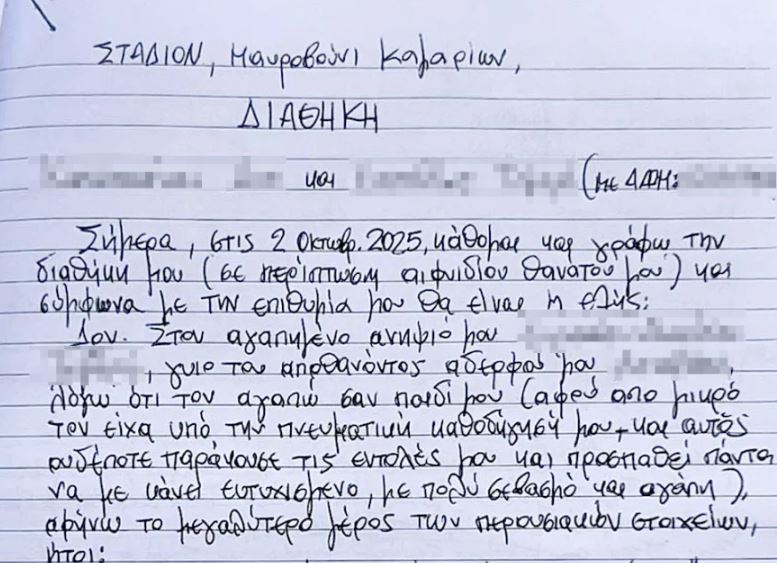 ΣΤΑΔΙΟΝ, Μαυροβούνι Καμαρίων,
ΔΙΑΘΗΚΗ
και (με ΑΦΜ:
Σήμερα, στις 2 Οκτωβρ. 2025, κάθομαι και γράφω την
διαθήκη μου (σε περίπτωση αιφνιδίου θανάτου μου) και
σύμφωνα με την επιθυμία μου θα είναι η εξής:
1ον. Στον αγαπημένο ανηψιό μου
, γυιο του αποθανόντος αδερφού μου ,
λόγω ότι τον αγαπώ σαν παιδί μου (αφού από μικρό
τον είχα υπό την πνευματική καθοδήγησή μου, και αυτός
ουδέποτε παράκουσε τις εντολές μου και προσπαθεί πάντα
να με κάνει ευτυχισμένο, με πολύ σεβασμό και αγάπη),
αφήνω το μεγαλύτερο μέρος των περουσιακών στοιχείων,
ήτοι: